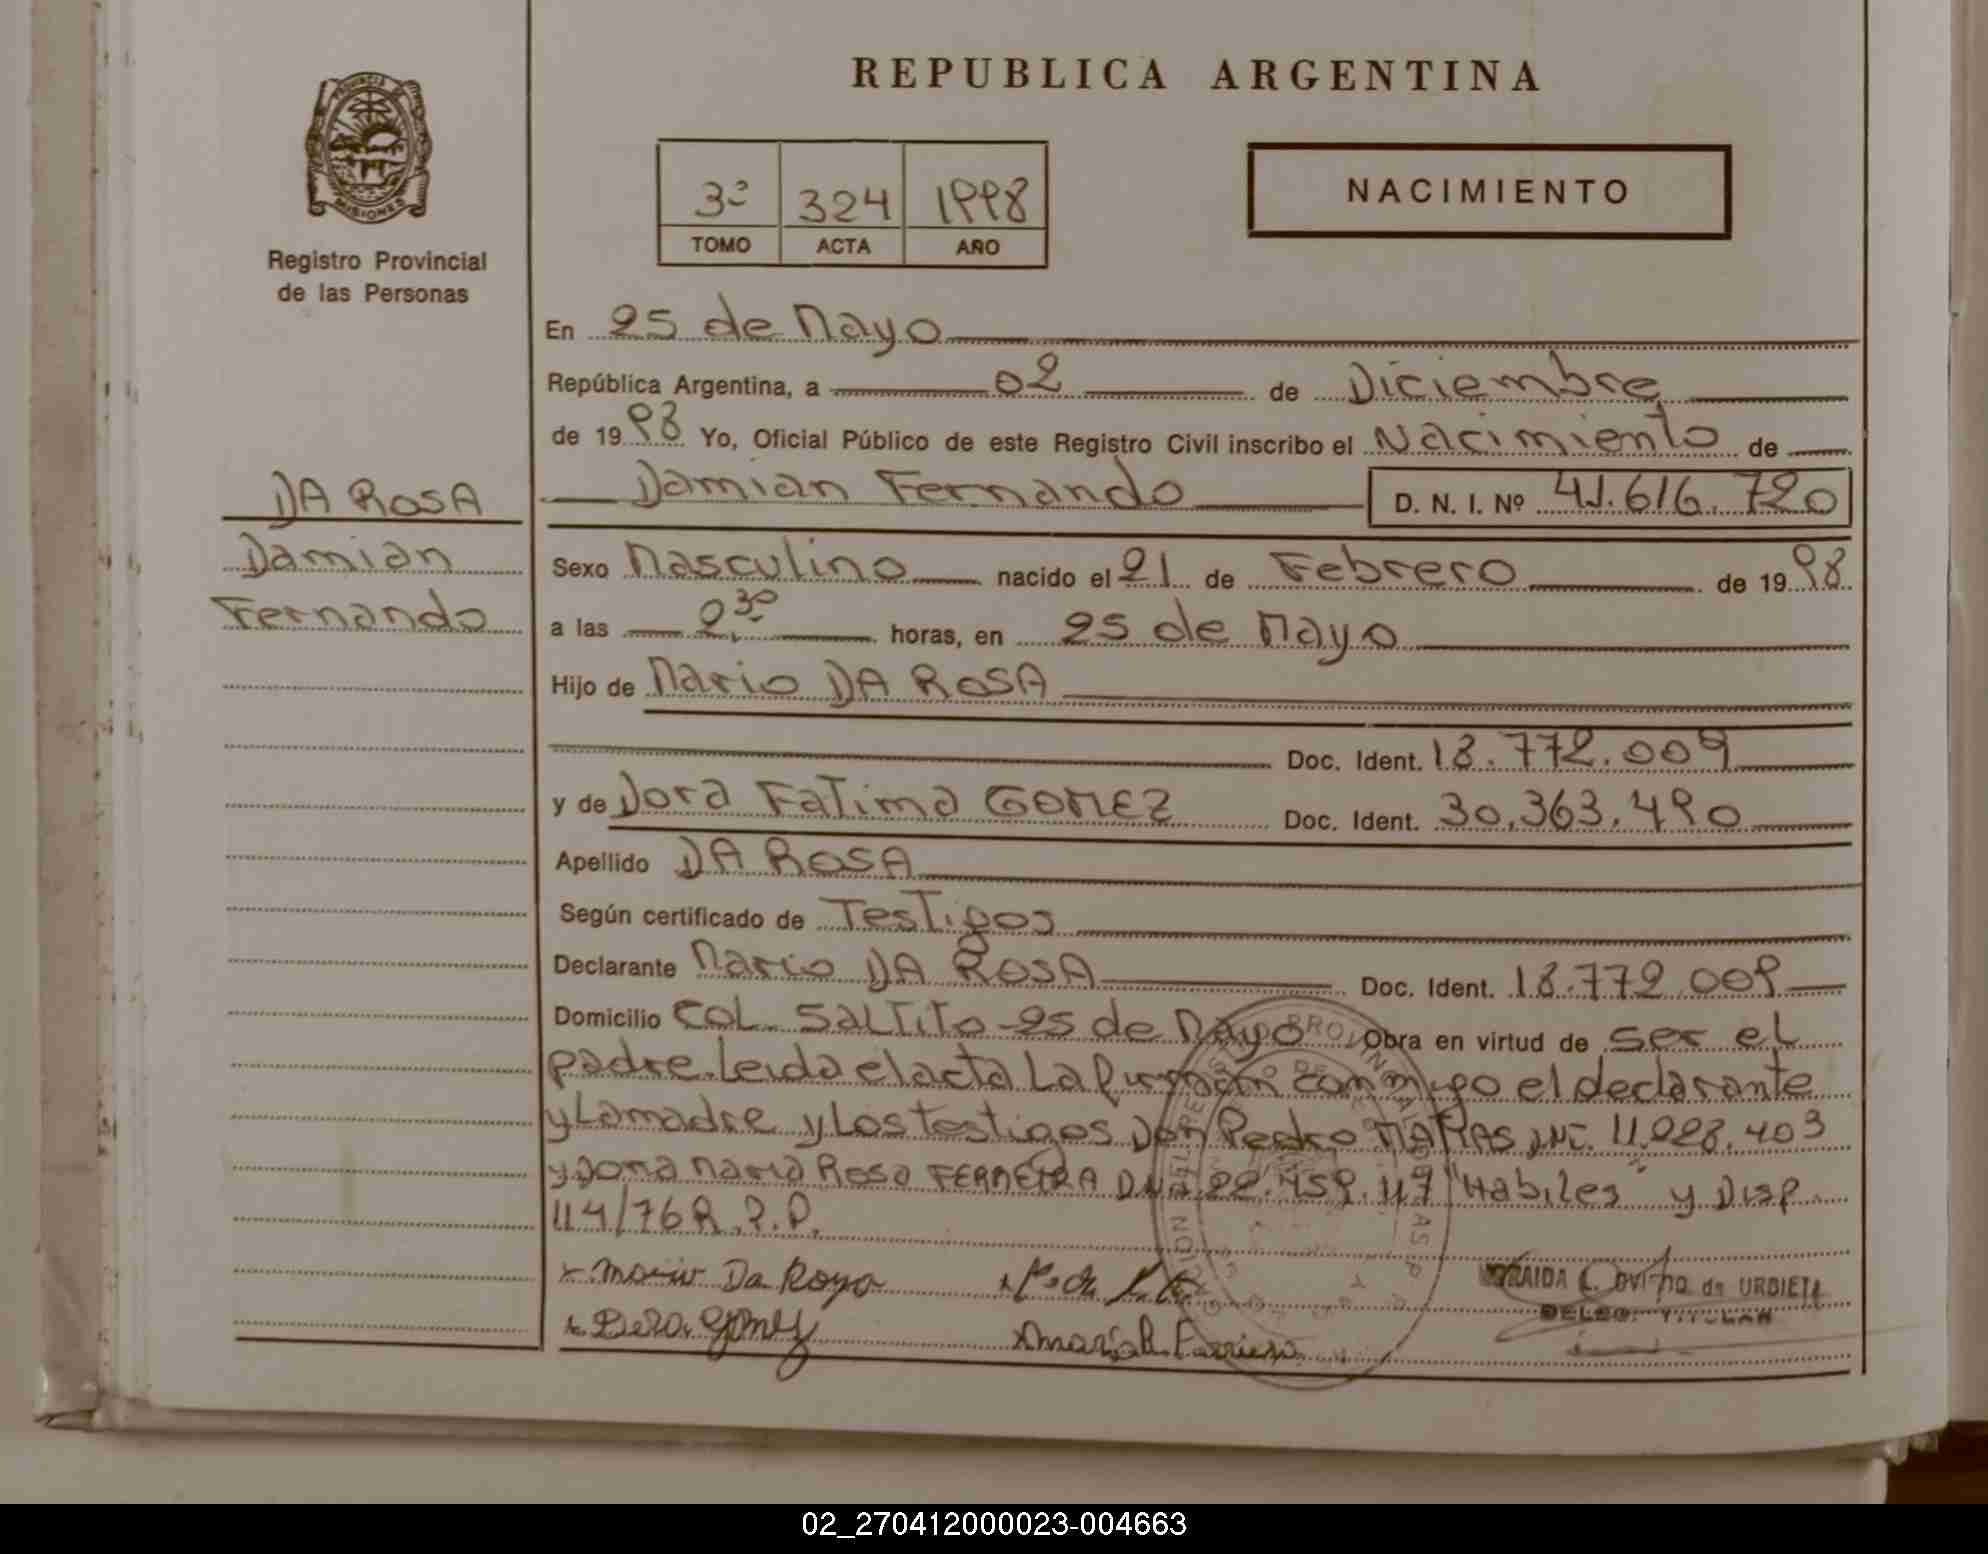 REPUBLICA ARGENTINA
PROVINCIA DE
MISIONES
Registro Provincial
de las Personas
3º 324 1998
TOMO ACTA AÑO
NACIMIENTO
En 25 de Mayo
República Argentina, a 02 de Diciembre
de 1998 Yo, Oficial Público de este Registro Civil inscribo el Nacimiento de
DA ROSA
Damian Fernando D. N. I. Nº 41.616.720
Damian
Fernando
Sexo Masculino nacido el 21 de Febrero de 1998
a las 2,30 horas, en 25 de Mayo
Hijo de Mario DA ROSA
Doc. Ident. 18.772.009
y de Dora Fatima GOMEZ Doc. Ident. 30.363.490
Apellido DA ROSA
Según certificado de Testigos
Declarante Mario DA ROSA Doc. Ident. 18.772.009
Domicilio COL. SALTITO-25 de Mayo Obra en virtud de ser el
padre. Leida el acta La firman conmigo el declarante
y La madre y Los testigos Don Pedro DNI. 11.028.403
y Dona Maria Rosa FERREIRA DNI 22.459.117 "Habiles" y Disp
114/76 R.P.P.
x Mario Da Rosa
x Dora Gomez
x Maria R. Ferreira
de URDIETA
DELEG. TITULAR
02_270412000023-004663